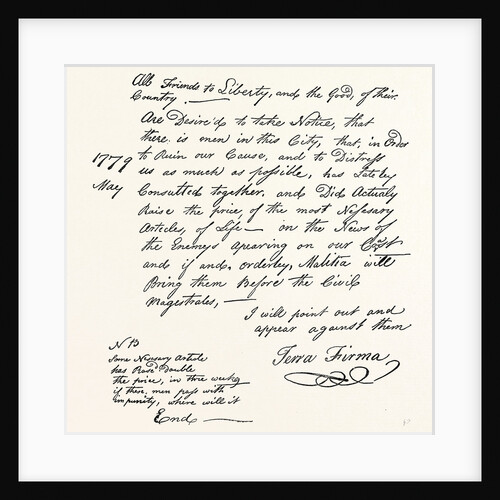 All Friends to Liberty, and the Good, of their
Country —
Are Desire'd to take Notice, that
there is men in this City, that, in Order
1779
to Ruin our Cause, and to Distress
us as much as possible, has Lateley
May
Consulted together. and Did Actualy
Raise the price, of the most Nessesary
Articles, of Life — in the News of
the Enemeys apearing on our Coast
and if and, orderley, Malitia will
Bring them Before the Civil
Magestrates, —
I will point out and
appear against them
Terra Firma
NB
some Nessesary Article
has Rose Double
the price, in three weeks
if these, men pass with
impunity, where will it
End —